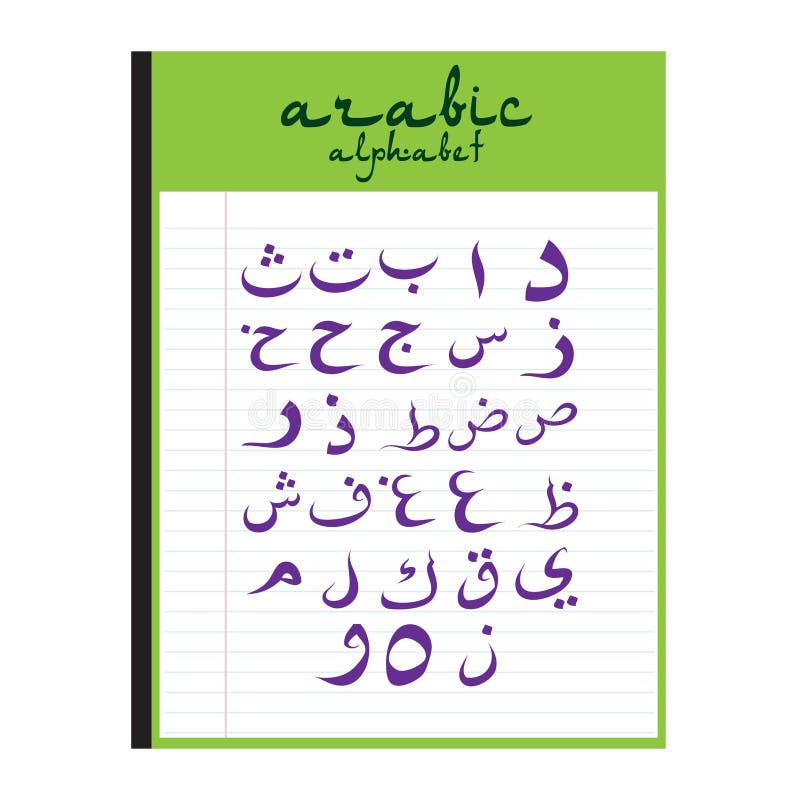 arabic
alphabet
د ا ب ت ث
ز س ج ح خ
ص ض ط ذ ر
ظ ع غ ف ش
ي ق ك ل م
ن ه و